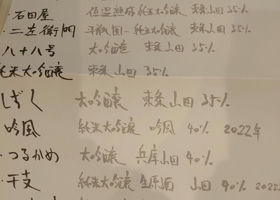 ・石田屋 低温熟成 純米大吟醸 東条山田 35%
・二左衛門 純米大吟醸 東条山田 35%
八十八号 大吟醸 東条 山田 35%
純米大吟醸 東条 山田 35%
しずく 大吟醸 東条 山田 35%
・吟風 純米大吟醸 吟風 40% 2022年
・つるかめ 大吟醸 兵庫山田 40%
・干支 純米大吟醸 生原酒 山田 40%